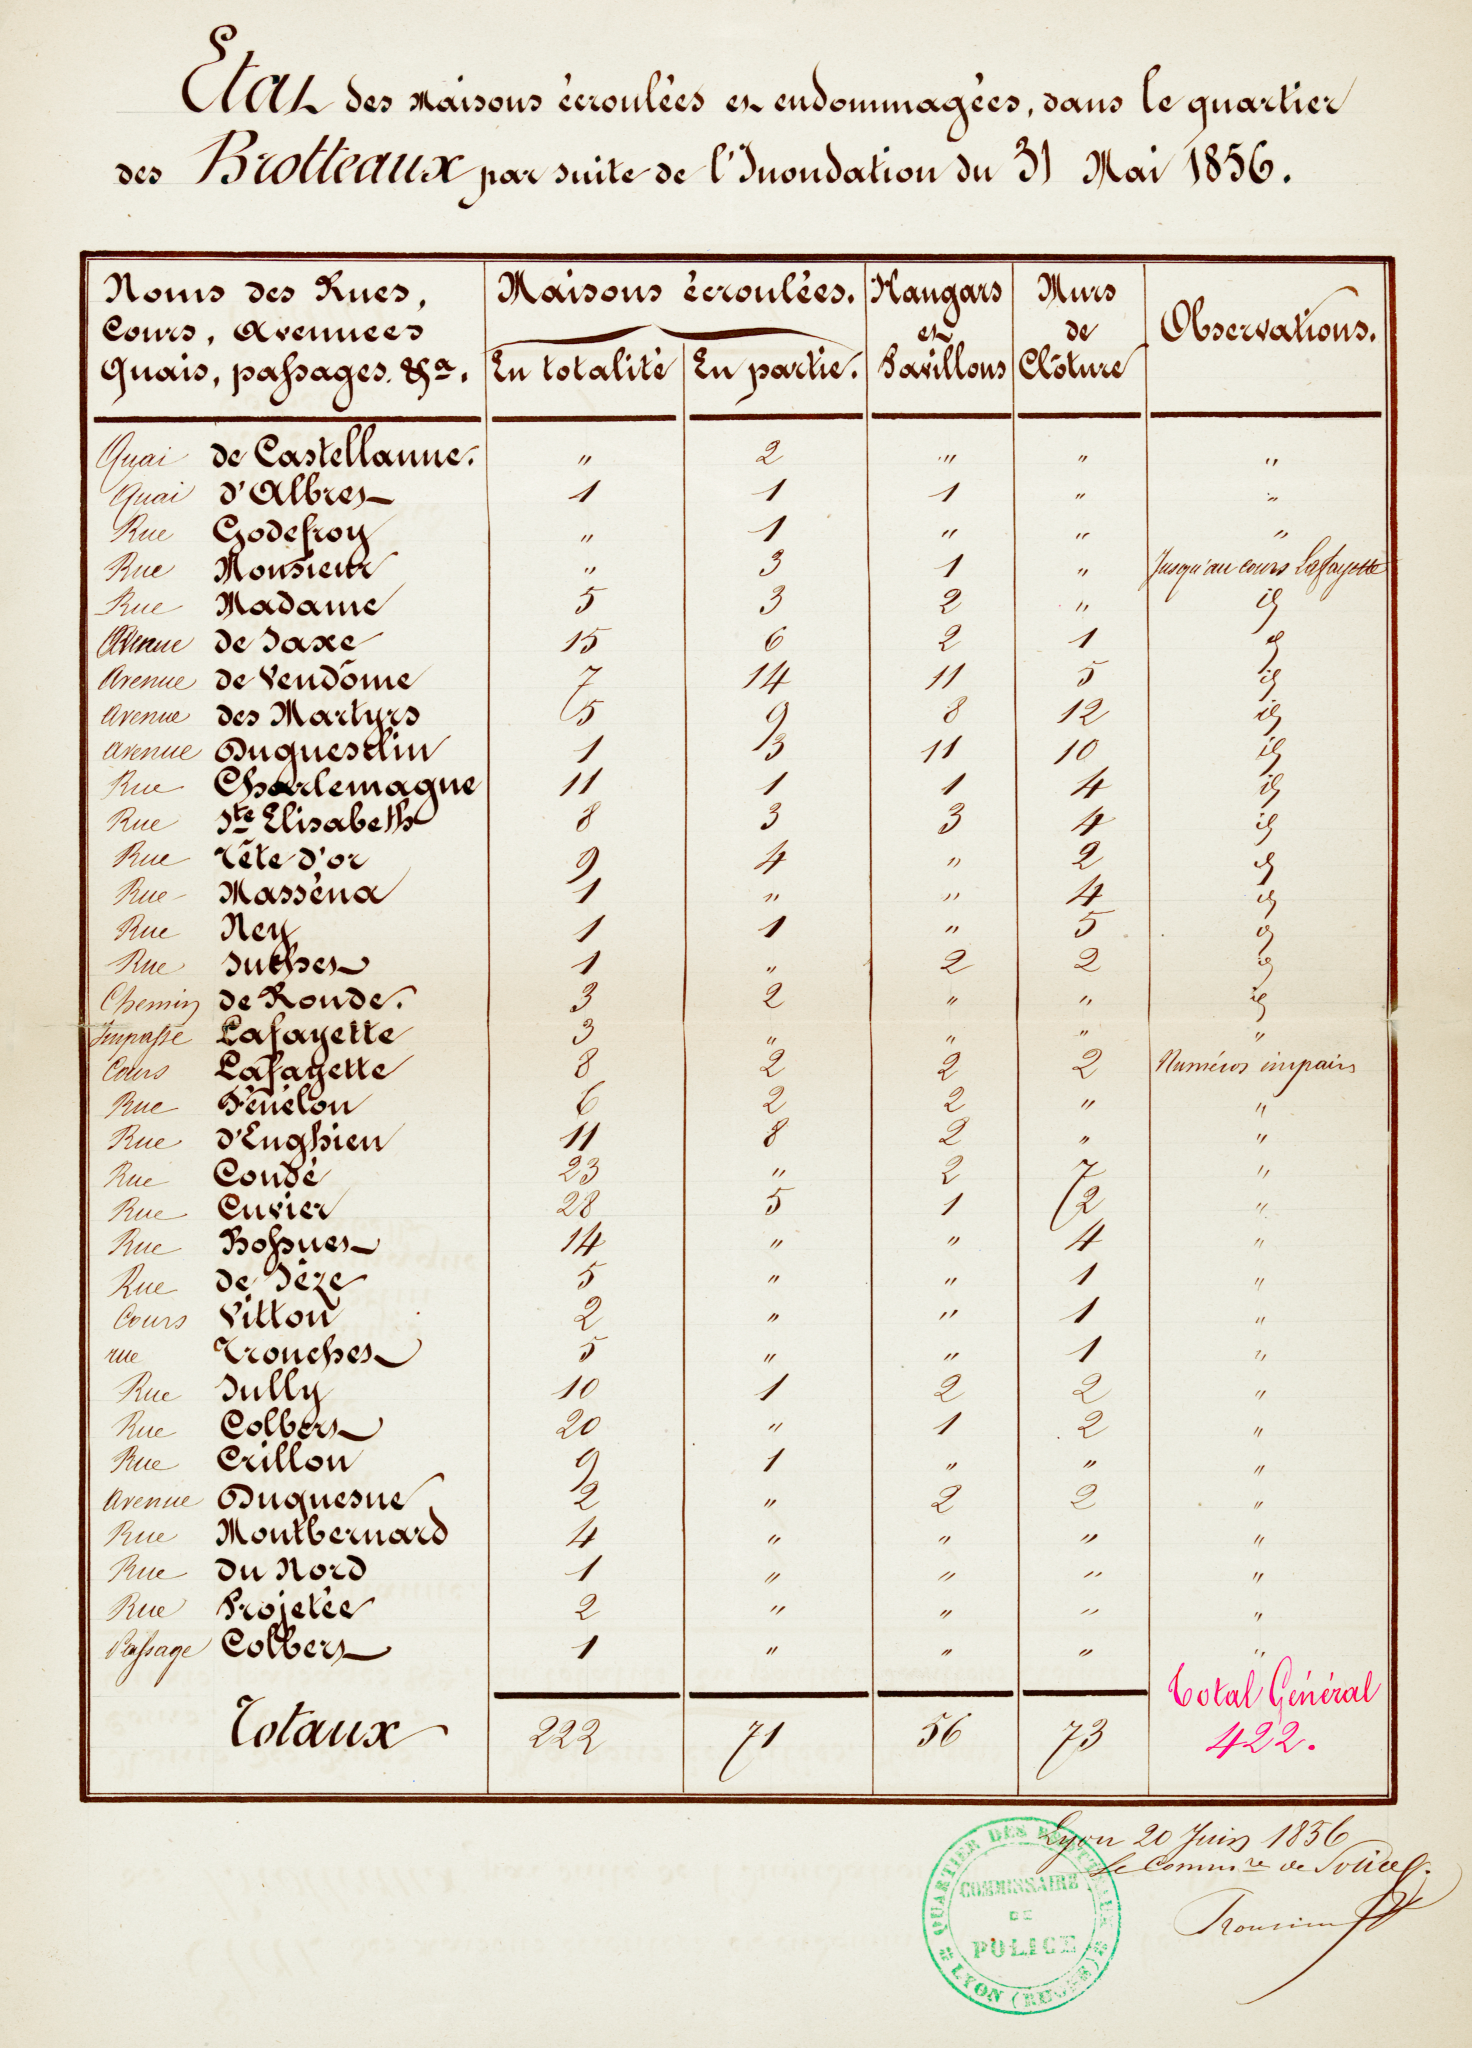 Etat des Maisons écroulées et endommagées, dans le quartier
des Brotteaux par suite de l'Inondation du 31 Mai 1856.
Noms des Rues, Cours, Avennees Quais, passages. &a. | Maisons écroulées. En totalité | En partie. | Hangars et Pavillons | Murs de Clôture | Observations.
Quai de Castellanne. " 2 " " "
Quai d'Albret 1 1 1 " "
Rue Godefroy " 1 " " "
Rue Monsieur " 3 1 " Jusqu'au cours Lafayette
Rue Madame 5 3 2 " id
Avenue de Saxe 15 6 2 1 id
Avenue de Vendôme 7 14 11 5 id
Avenue des Martyrs 5 9 8 12 id
Avenue Duguesclin 1 3 11 10 id
Rue Charlemagne 11 1 1 4 id
Rue Ste Elisabeth 8 3 3 4 id
Rue Tête d'or 9 4 " 2 id
Rue Masséna 1 " " 4 id
Rue Ney 1 1 " 5 id
Rue Suchet 1 " 2 2 id
Chemin de Ronde. 3 2 " " id
Impasse Lafayette 3 " " " "
Cours Lafayette 8 2 2 2 Numéros impairs
Rue Fénélon 6 2 2 " "
Rue d'Enghien 11 8 2 " "
Rue Condé 23 " 2 7 "
Rue Cuvier 28 5 1 2 "
Rue Bossuet 14 " " 4 "
Rue de Sèze 5 " " 1 "
Cours Vitton 2 " " 1 "
rue Tronchet 5 " " 1 "
Rue Sully 10 1 2 2 "
Rue Colbert 20 " 1 2 "
Rue Crillon 9 1 " " "
Avenue Duquesne 2 " 2 2 "
Rue Montbernard 4 " " " "
Rue du Nord 1 " " " "
Rue Projetée 2 " " " "
Passage Colbert 1 " " " "
Total Général
Totaux 222 71 56 73 422.
Lyon 20 Juin 1856
Le Commre de Police
QUARTIER DES BROTTEAUX
COMMISSAIRE
DE
POLICE
LYON (RHÔNE)